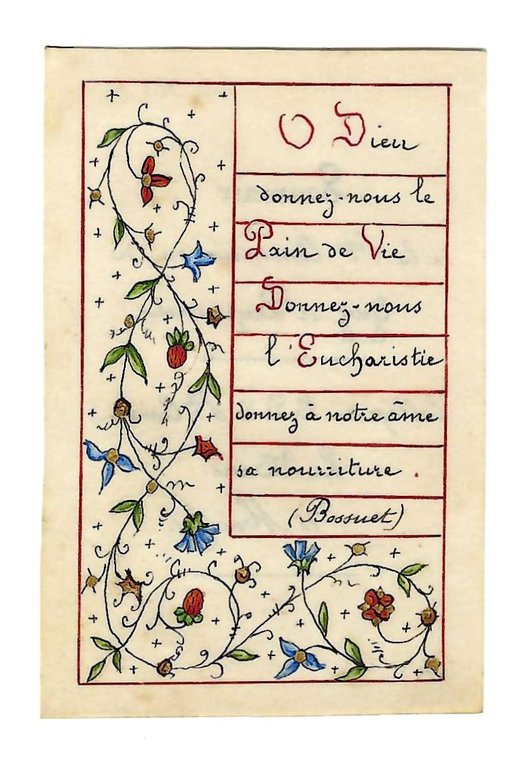 O Dieu
donnez-nous le
Pain de Vie
Donnez-nous
l'Eucharistie
donnez à notre âme
sa nourriture .
(Bossuet)